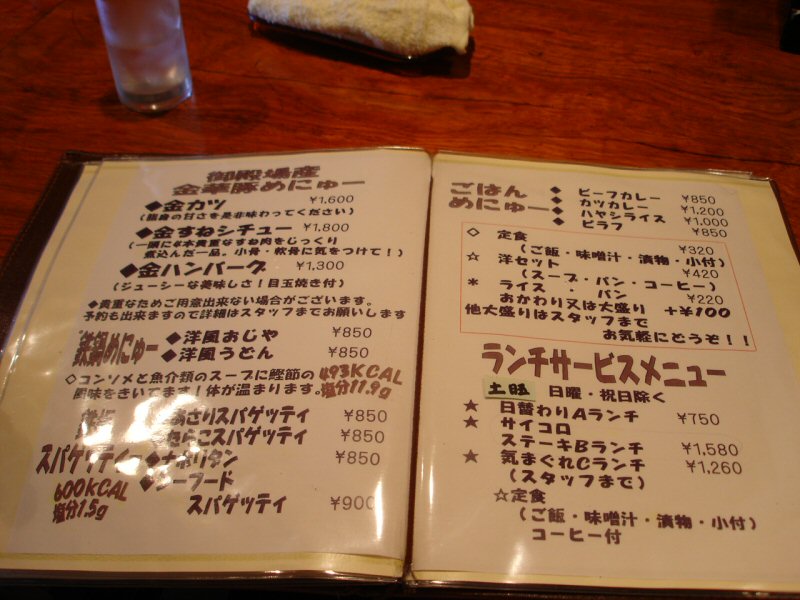 御殿場産
金華豚めにゅー
◆金カツ ¥1,600
(脂身の甘さを是非味わってください)
◆金すねシチュー ¥1,800
(一頭に4本貴重なすね肉をじっくり
煮込んだ一品。小骨・軟骨に気をつけて!)
◆金ハンバーグ ¥1,300
(ジューシーな美味しさ!目玉焼き付)
◆貴重なためご用意出来ない場合がございます。
予約も出来ますので詳細はスタッフまでお願いします
鉄鍋めにゅー ◆洋風おじや ¥850
◆洋風うどん ¥850
◇コンソメと魚介類のスープに鰹節の 493KCAL
風味をきいてます!体が温まります。塩分11.9g
あさりスパゲッティ ¥850
たらこスパゲッティ ¥850
スパゲッティー◆ナポリタン ¥850
600KCAL
塩分1.5g
◆シーフード
スパゲッティ ¥900
ごはん
めにゅー
◆ ビーフカレー ¥850
◆ カツカレー ¥1,200
◆ ハヤシライス ¥1,000
◆ ピラフ ¥850
◇ 定食 ¥320
(ご飯・味噌汁・漬物・小付)
☆ 洋セット ¥420
(スープ・パン・コーヒー)
* ライス・ ・パン ¥220
おかわり又は大盛り +¥100
他大盛りはスタッフまで
お気軽にどうぞ!!
ランチサービスメニュー
土 日曜・祝日除く
★ 日替わりAランチ ¥750
★ サイコロ
ステーキBランチ ¥1,580
★ 気まぐれCランチ ¥1,260
(スタッフまで)
☆定食
(ご飯・味噌汁・漬物・小付)
コーヒー付